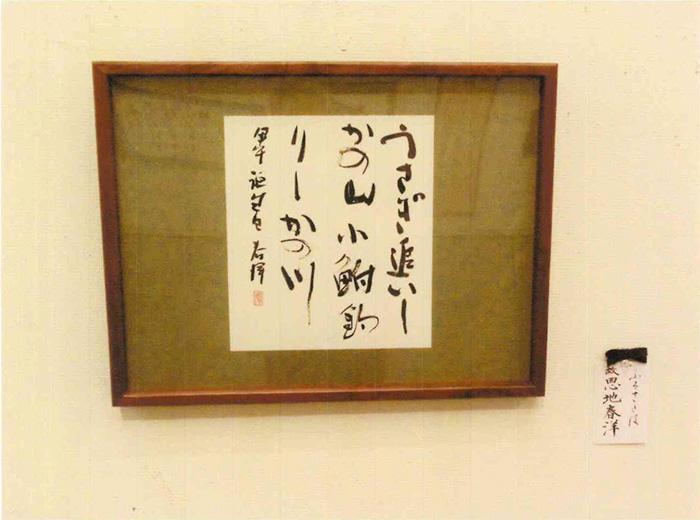 うさぎ追いし
かの山小鮒釣
りしかの川
春洋
ふるさとは
故恩地春洋